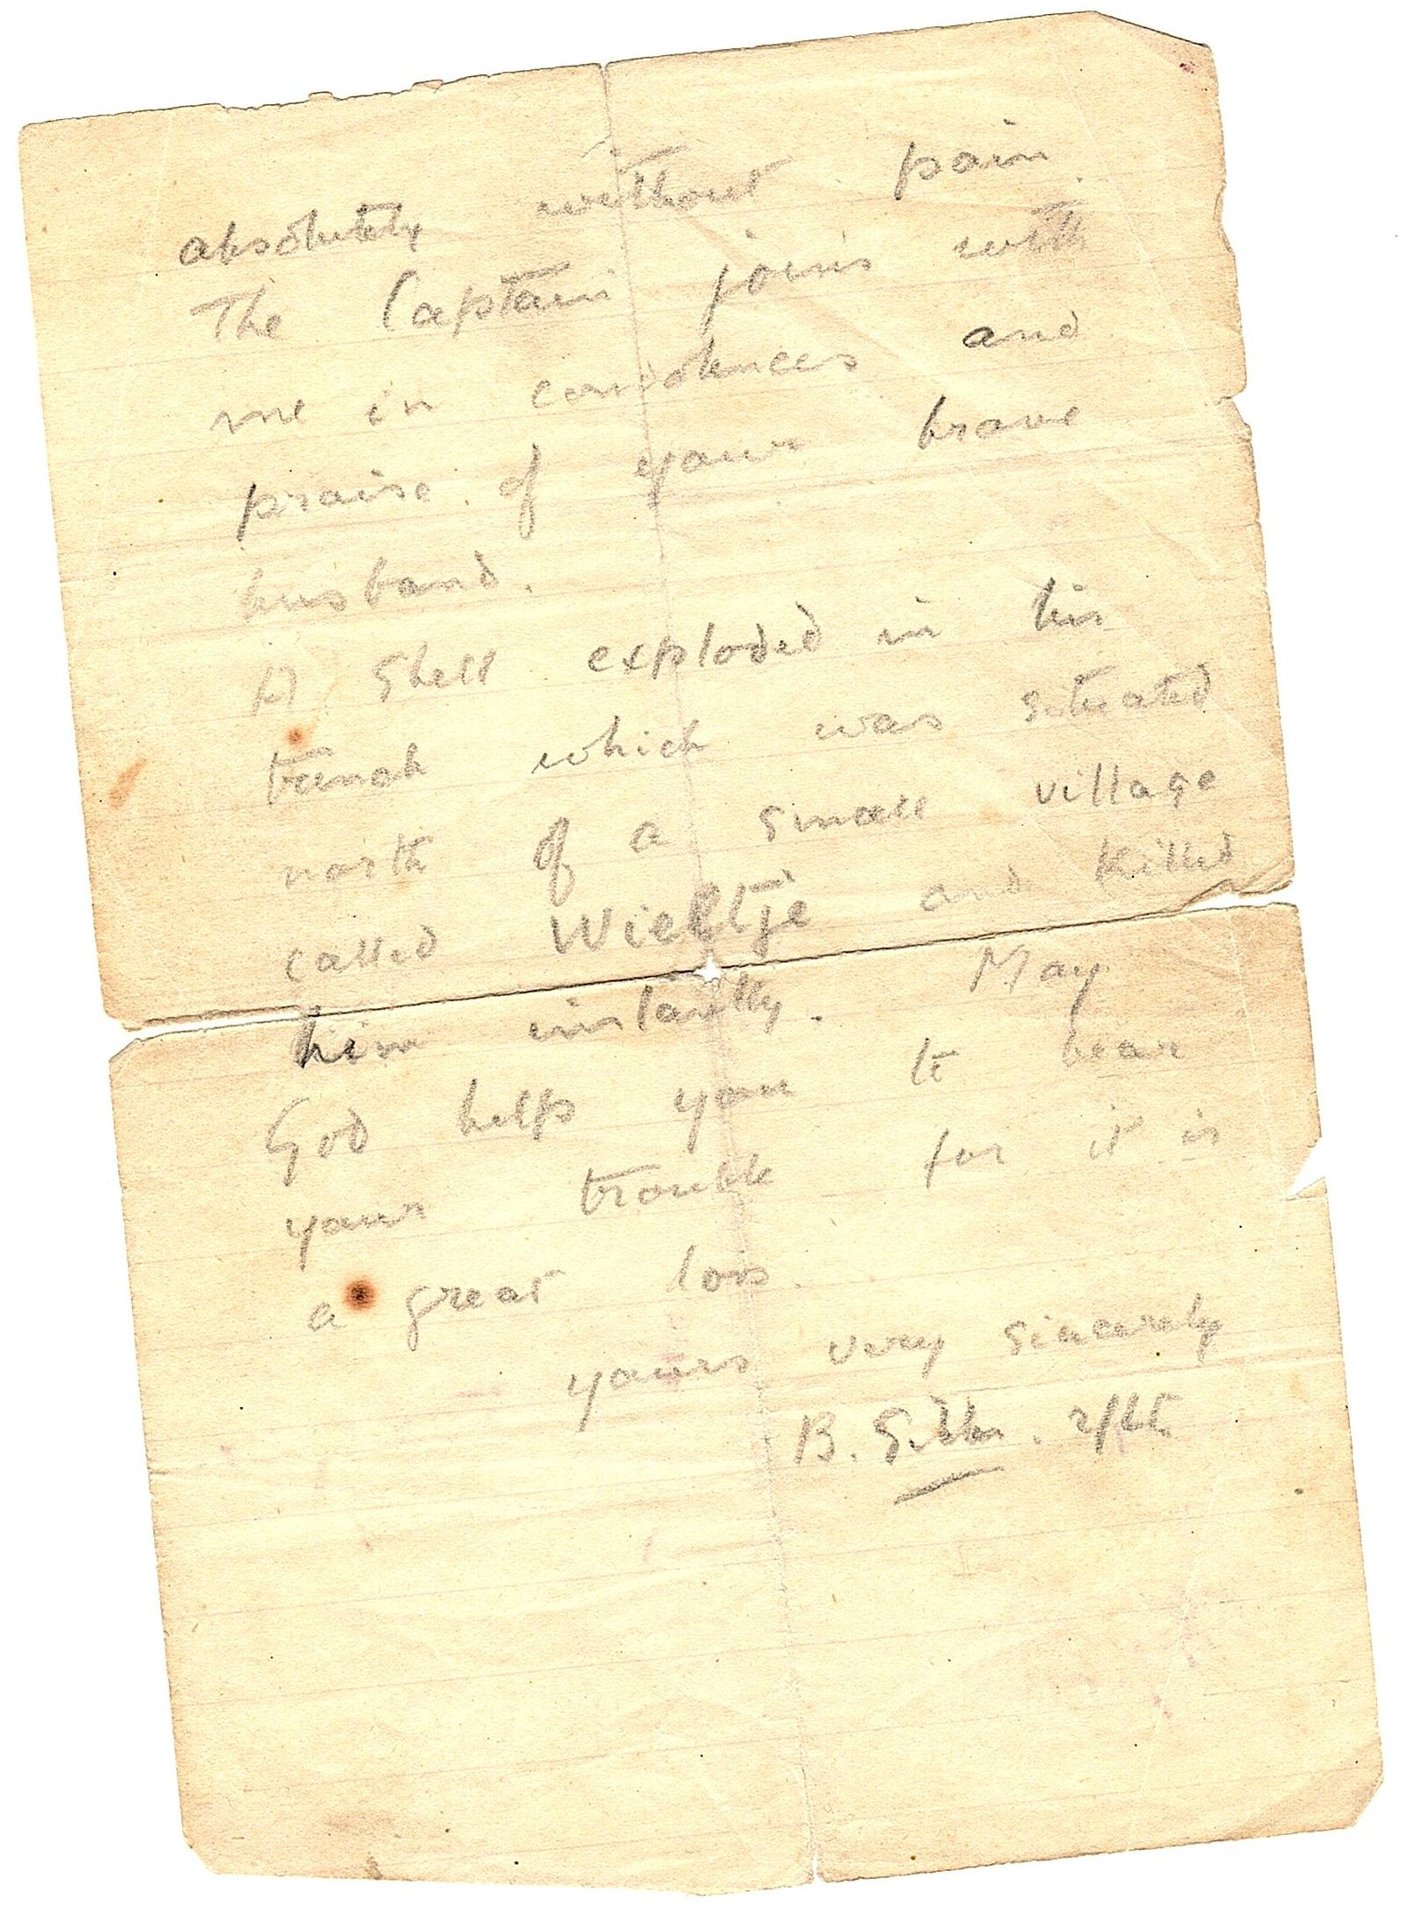 absolutely without pain.
The Captain joins with
me in condolences and
praise of your brave
husband.
A Shell exploded in his
trench which was situated
north of a small village
called Wieltje and killed
him instantly. May
God help you to bear
your trouble for it is
a great loss.
yours very sincerely
B. Gibbs. 2/Lt.